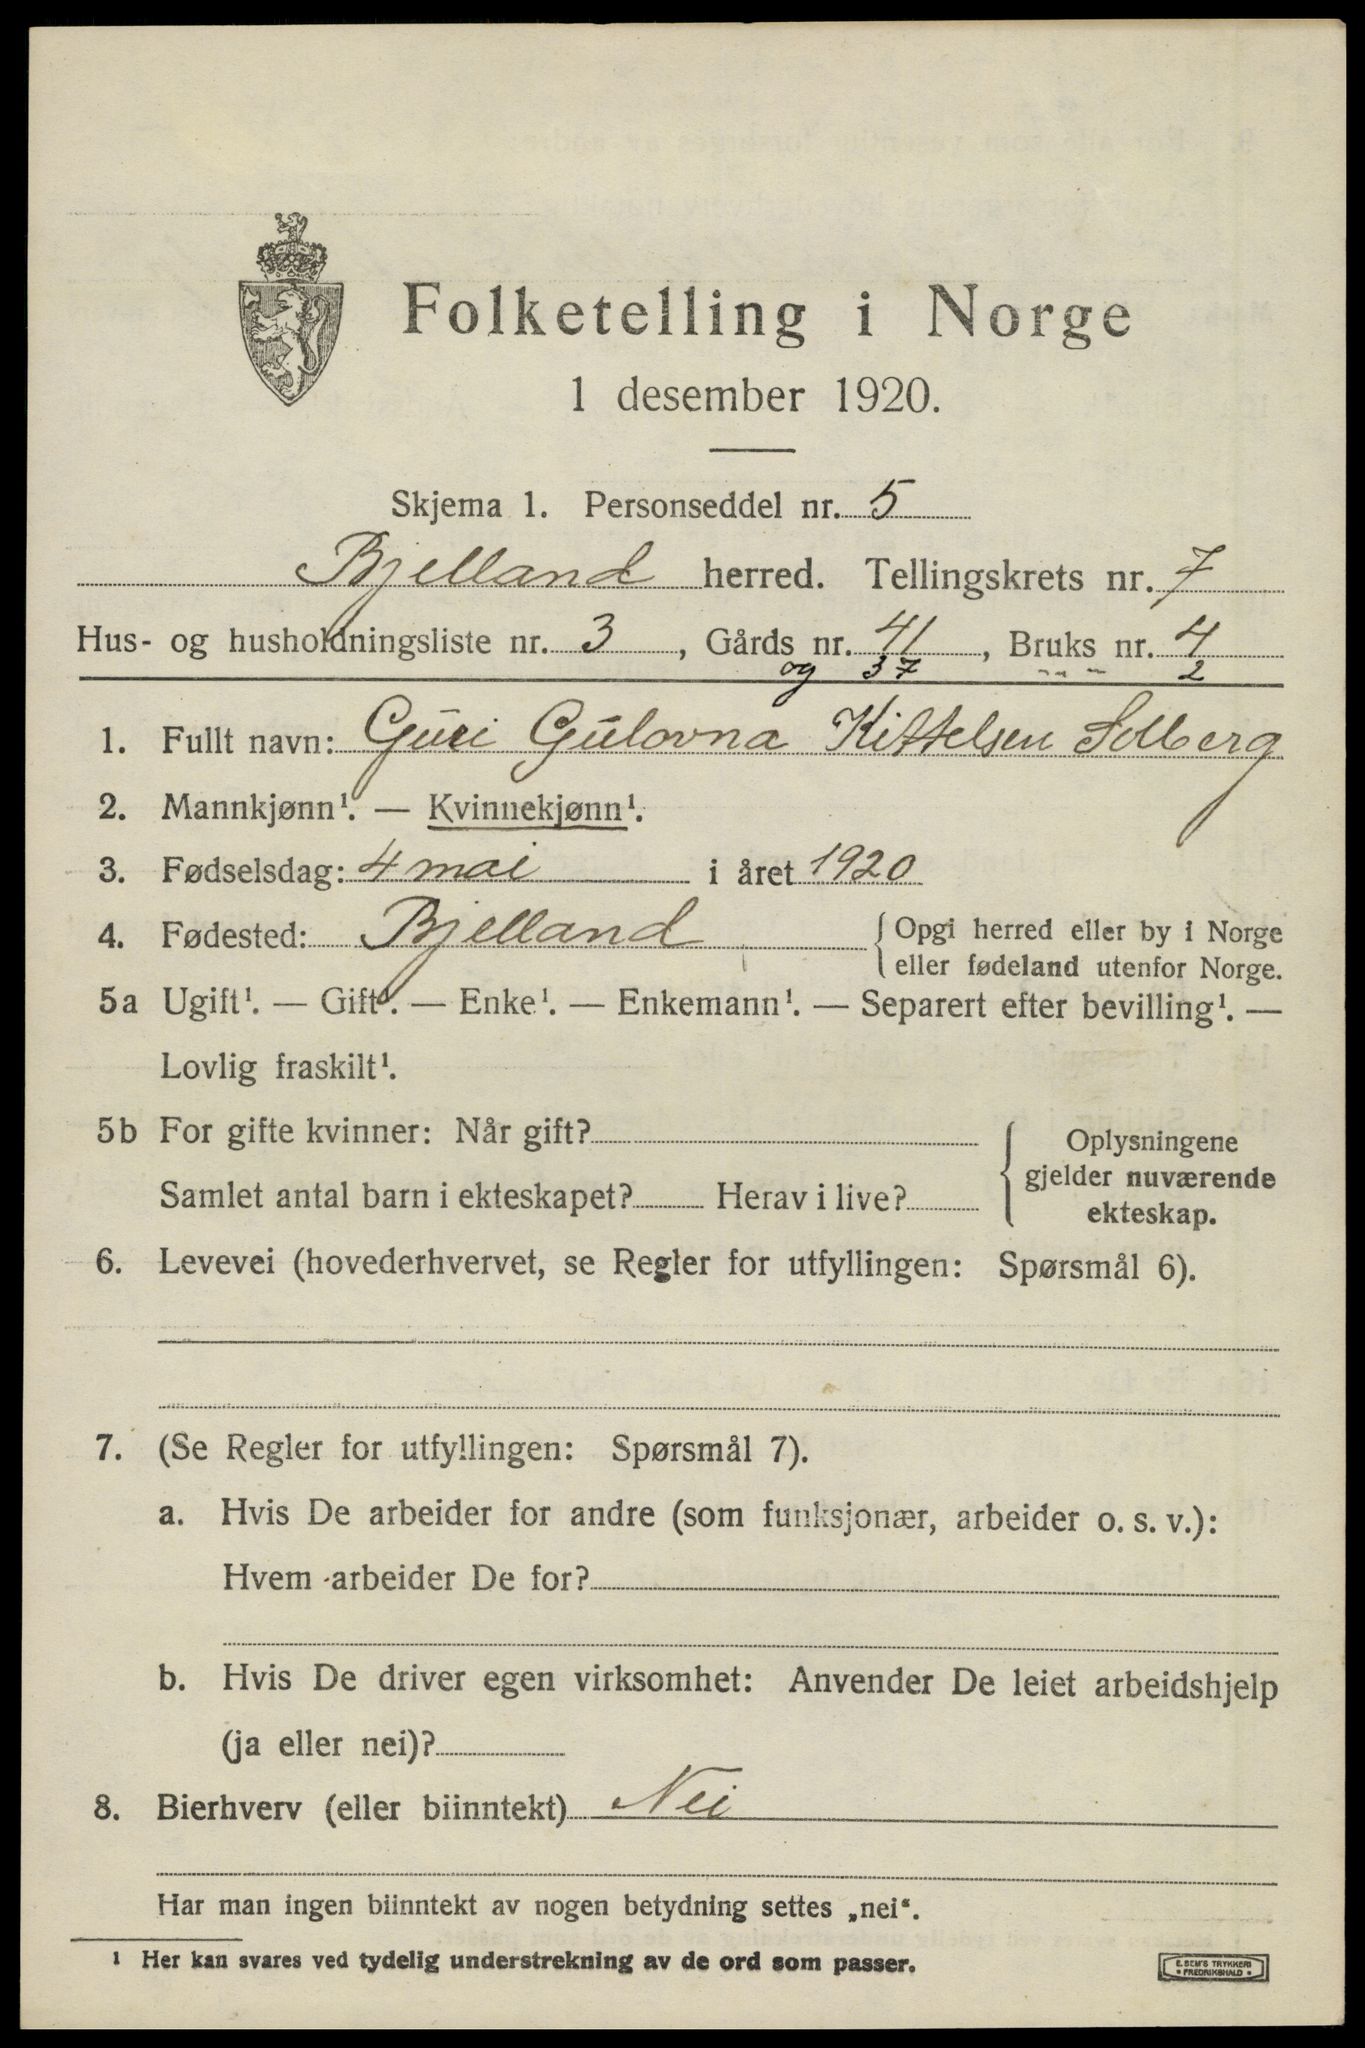 Folketelling i Norge
1 desember 1920.
Skjema 1. Personseddel nr. 5
Bjelland herred. Tellingskrets nr. 7
Hus- og husholdningsliste nr. 3, Gårds nr. 41, Bruks nr. 4
og 37 " " 2
1. Fullt navn: Guri Gulovna Kittelsen Solberg
2. Mannkjønn¹. — Kvinnekjønn¹.
3. Fødselsdag: 4 mai i året 1920
4. Fødested: Bjelland { Opgi herred eller by i Norge
eller fødeland utenfor Norge.
5a Ugift¹. — Gift¹. — Enke¹. — Enkemann¹. — Separert efter bevilling¹. —
Lovlig fraskilt¹.
5b For gifte kvinner: Når gift?
Samlet antal barn i ekteskapet? Herav i live?
Oplysningene
gjelder nuværende
ekteskap.
6. Levevei (hovederhvervet, se Regler for utfyllingen: Spørsmål 6).
7. (Se Regler for utfyllingen: Spørsmål 7).
a. Hvis De arbeider for andre (som funksjonær, arbeider o. s. v.):
Hvem arbeider De for?
b. Hvis De driver egen virksomhet: Anvender De leiet arbeidshjelp
(ja eller nei)?
8. Bierhverv (eller biinntekt) Nei
Har man ingen biinntekt av nogen betydning settes „nei“.
¹ Her kan svares ved tydelig understrekning av de ord som passer.
E. SEM'S TRYKKERI
• FREDRIKSHALD •